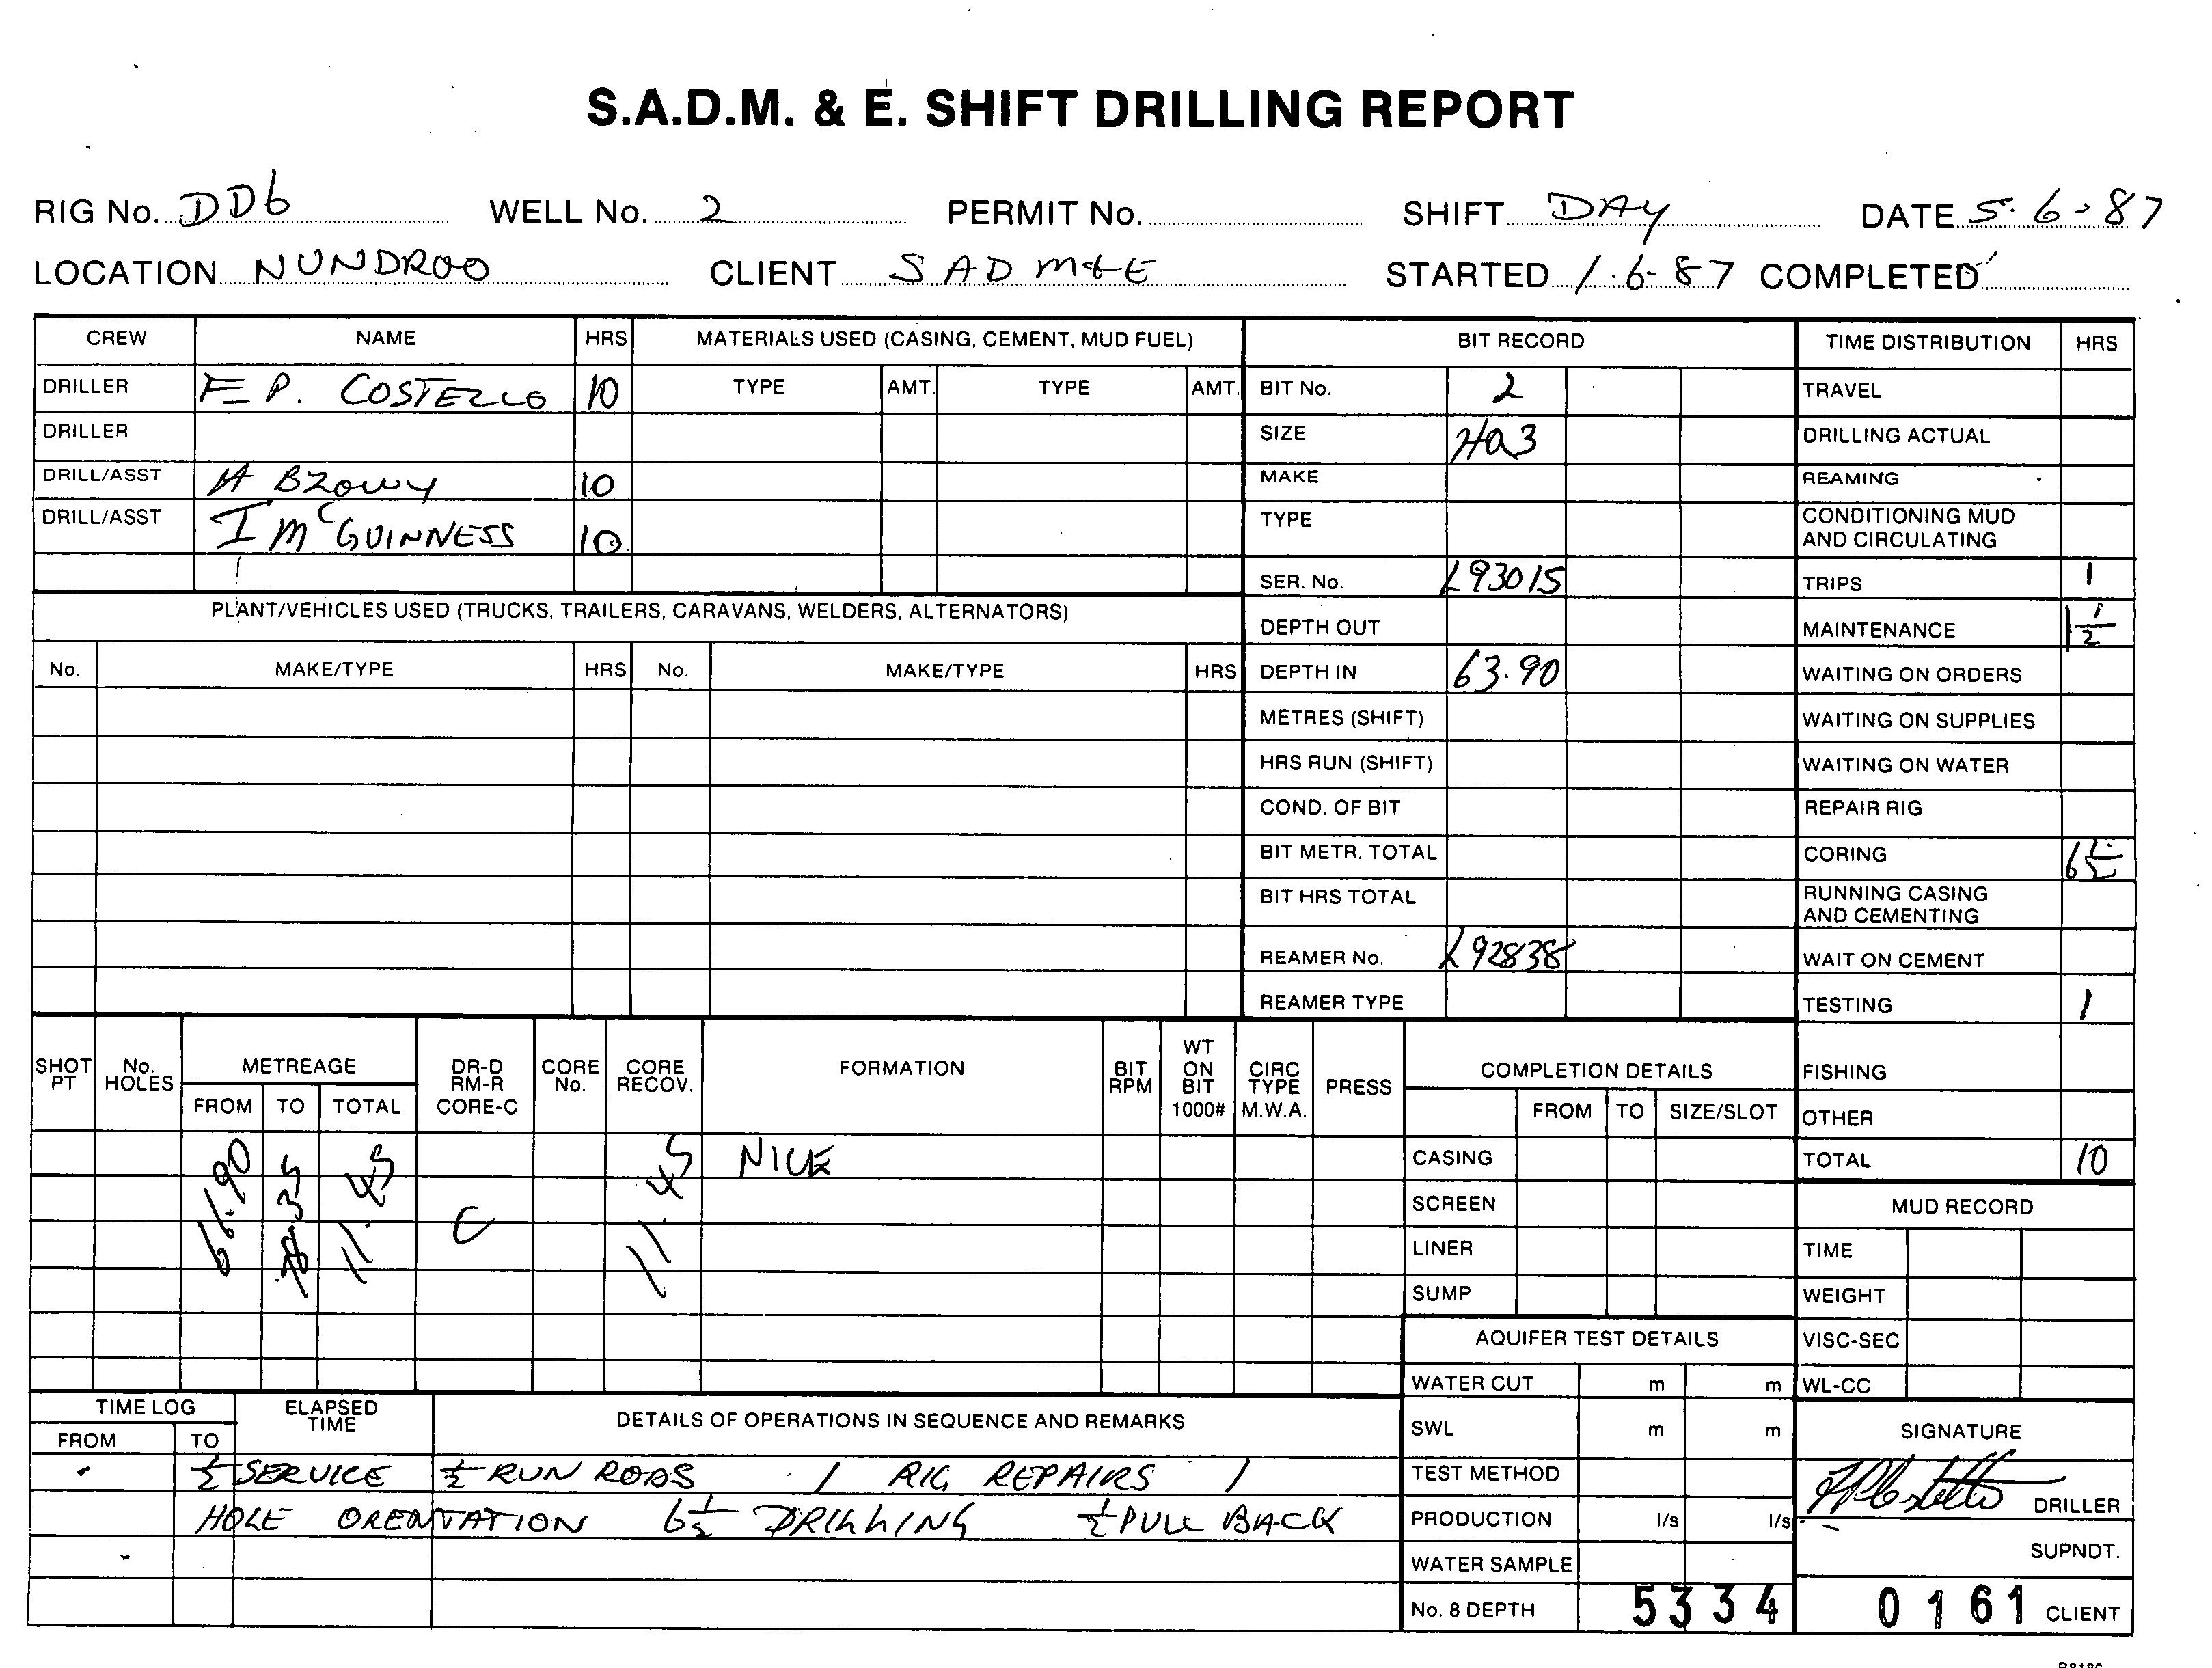 S.A.D.M. & E. SHIFT DRILLING REPORT
RIG No. DD6 WELL No. 2 PERMIT No. SHIFT DAY DATE 5.6.87
LOCATION NUNDROO CLIENT SADM&E STARTED 1.6.87 COMPLETED
CREW NAME HRS MATERIALS USED (CASING, CEMENT, MUD FUEL) BIT RECORD TIME DISTRIBUTION HRS
DRILLER F P. COSTELLO 10 TYPE AMT. TYPE AMT. BIT No. 2 TRAVEL
DRILLER SIZE HQ3 DRILLING ACTUAL
DRILL/ASST A BZOWY 10 MAKE REAMING
DRILL/ASST I McGUINNESS 10 TYPE CONDITIONING MUD AND CIRCULATING
SER. No. L93015 TRIPS 1
PLANT/VEHICLES USED (TRUCKS, TRAILERS, CARAVANS, WELDERS, ALTERNATORS) DEPTH OUT MAINTENANCE 1 1/2
No. MAKE/TYPE HRS No. MAKE/TYPE HRS DEPTH IN 63.90 WAITING ON ORDERS
METRES (SHIFT) WAITING ON SUPPLIES
HRS RUN (SHIFT) WAITING ON WATER
COND. OF BIT REPAIR RIG
BIT METR. TOTAL CORING 6 1/2
BIT HRS TOTAL RUNNING CASING AND CEMENTING
REAMER No. L92838 WAIT ON CEMENT
REAMER TYPE TESTING 1
SHOT PT No. HOLES METREAGE DR-D RM-R CORE-C CORE No. CORE RECOV. FORMATION BIT RPM WT ON BIT 1000# CIRC TYPE M.W.A. PRESS COMPLETION DETAILS FISHING
FROM TO TOTAL FROM TO SIZE/SLOT OTHER
66.90 78.35 11.45 C 11.45 NICE CASING TOTAL 10
SCREEN MUD RECORD
LINER TIME
SUMP WEIGHT
AQUIFER TEST DETAILS VISC-SEC
WATER CUT m m WL-CC
TIME LOG ELAPSED TIME DETAILS OF OPERATIONS IN SEQUENCE AND REMARKS SWL m m SIGNATURE
FROM TO
1/2 SERVICE 1/2 RUN RODS 1 RIG REPAIRS 1 TEST METHOD
HOLE ORENTATION 6 1/2 DRILLING 1/2 PULL BACK PRODUCTION l/s l/s FPCostello DRILLER
WATER SAMPLE SUPNDT.
No. 8 DEPTH 5334 0161 CLIENT